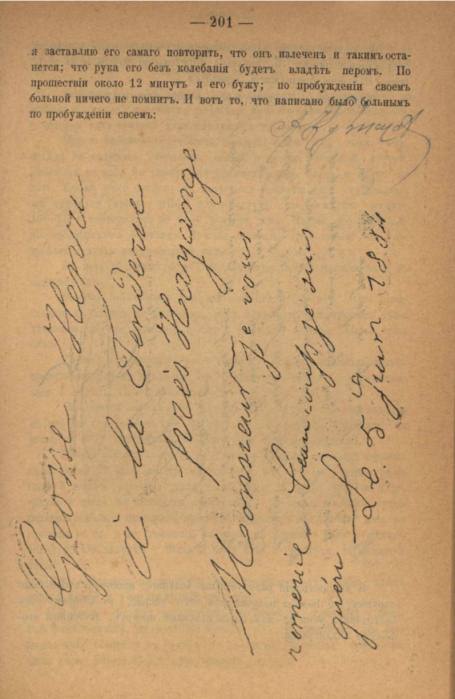 — 201 —
я заставляю его самаго повторить, что онъ излеченъ и такимъ оста-
нется; что рука его безъ колебанія будетъ владѣть перомъ. По
прошествіи около 12 минутъ я его бужу; по пробужденіи своемъ
больной ничего не помнитъ. И вотъ то, что написано было больнымъ
по пробужденіи своемъ:
Grosse Henri
à la Fenderie
près Hayange
Monsieur je vous
remercie beaucoup je suis
guéri
Le 5 juin 1884